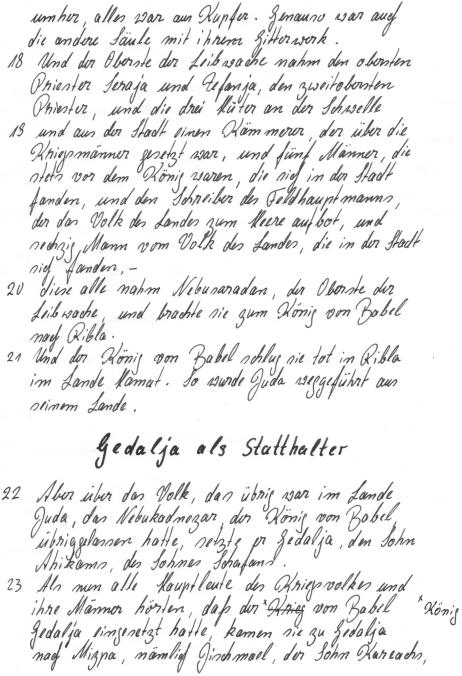 umher, alles war aus Kupfer. Genauso war auch
die andere Säule mit ihrem Gitterwerk.
18 Und der Oberste der Leibwache nahm den obersten
Priester Seraja und Zefanja, den zweitobersten
Priester, und die drei Hüter an der Schwelle
19 und aus der Stadt einen Kämmerer, der über die
Kriegsmänner gesetzt war, und fünf Männer, die
stets vor dem König waren, die sich in der Stadt
fanden, und den Schreiber des Feldhauptmanns,
der das Volk des Landes zum Heere aufbot, und
sechzig Mann vom Volk des Landes, die in der Stadt
sich fanden, –
20 diese alle nahm Nebusaradan, der Oberste der
Leibwache, und brachte sie zum König von Babel
nach Ribla.
21 Und der König von Babel schlug sie tot in Ribla
im Lande Hamat. So wurde Juda weggeführt aus
seinem Lande.
Gedalja als Statthalter
22 Aber über das Volk, das übrig war im Lande
Juda, das Nebukadnezar, der König von Babel,
übriggelassen hatte, setzte er Gedalja, den Sohn
Ahikams, des Sohnes Schafans.
23 Als nun alle Hauptleute des Kriegsvolkes und
ihre Männer hörten, daß der *Krieg von Babel *König
Gedalja eingesetzt hatte, kamen sie zu Gedalja
nach Mizpa, nämlich Jischmael, der Sohn Kareachs,